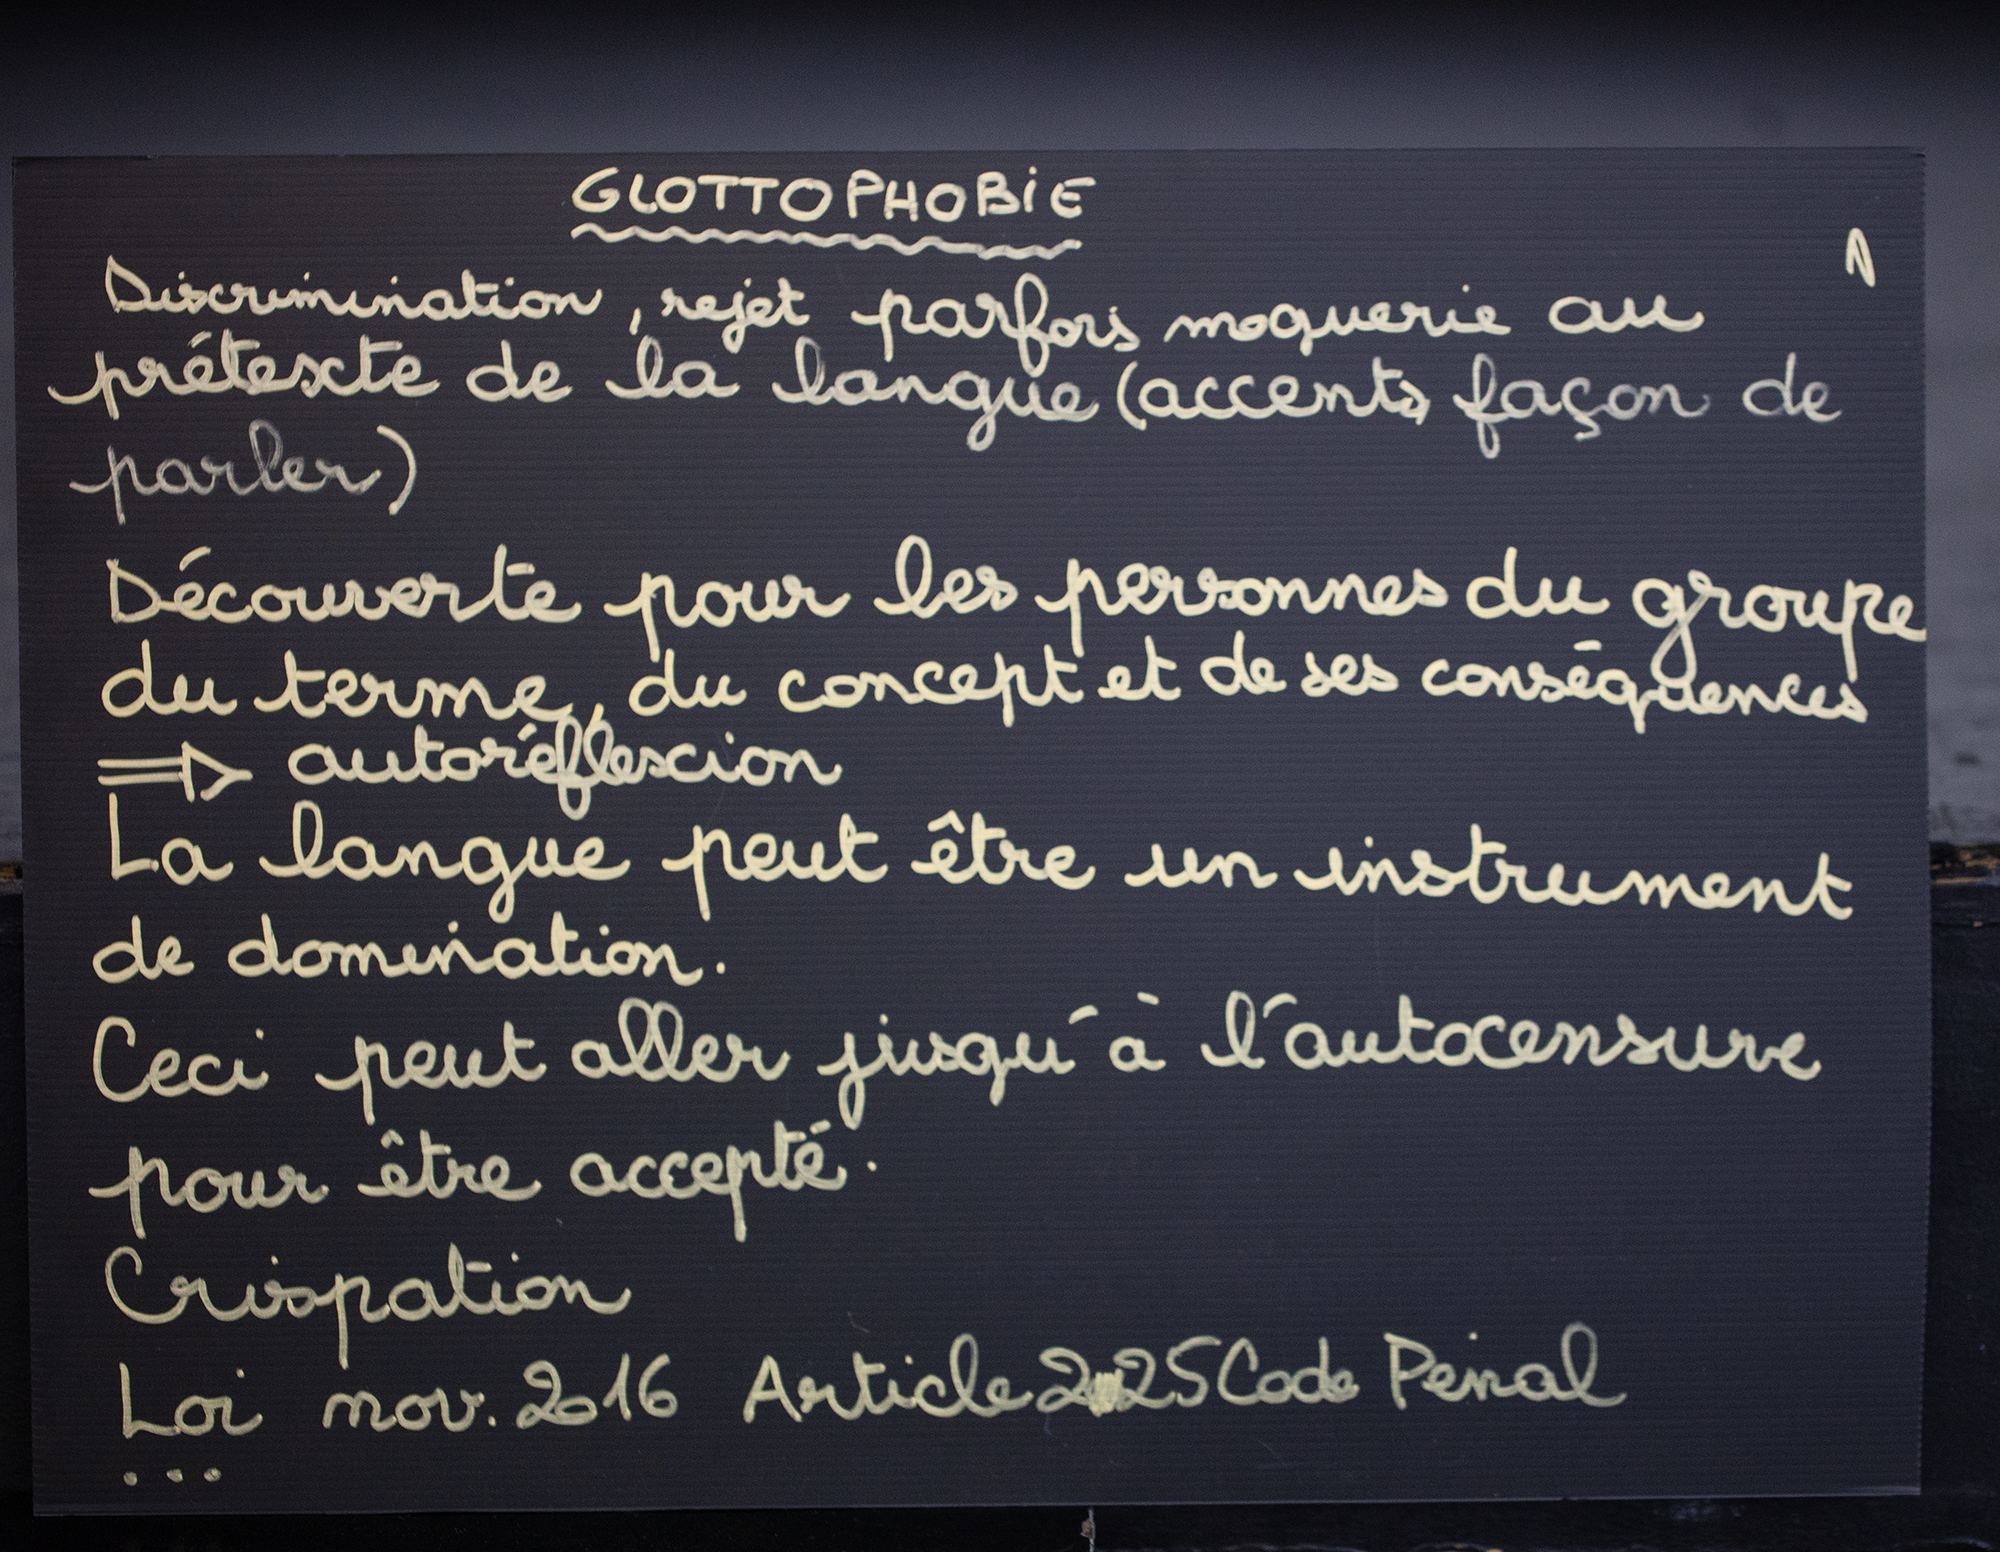 GLOTTOPHOBIE
Discrimination, rejet parfois moquerie au
prétexte de la langue (accents, façon de
parler)
Découverte pour les personnes du groupe
du terme, du concept et de ses conséquences
⇒ autoréflexcion
La langue peut être un instrument
de domination.
Ceci peut aller jusqu'à l'autocensure
pour être accepté.
Crispation
Loi nov. 2016 Article 225 Code Pénal
...